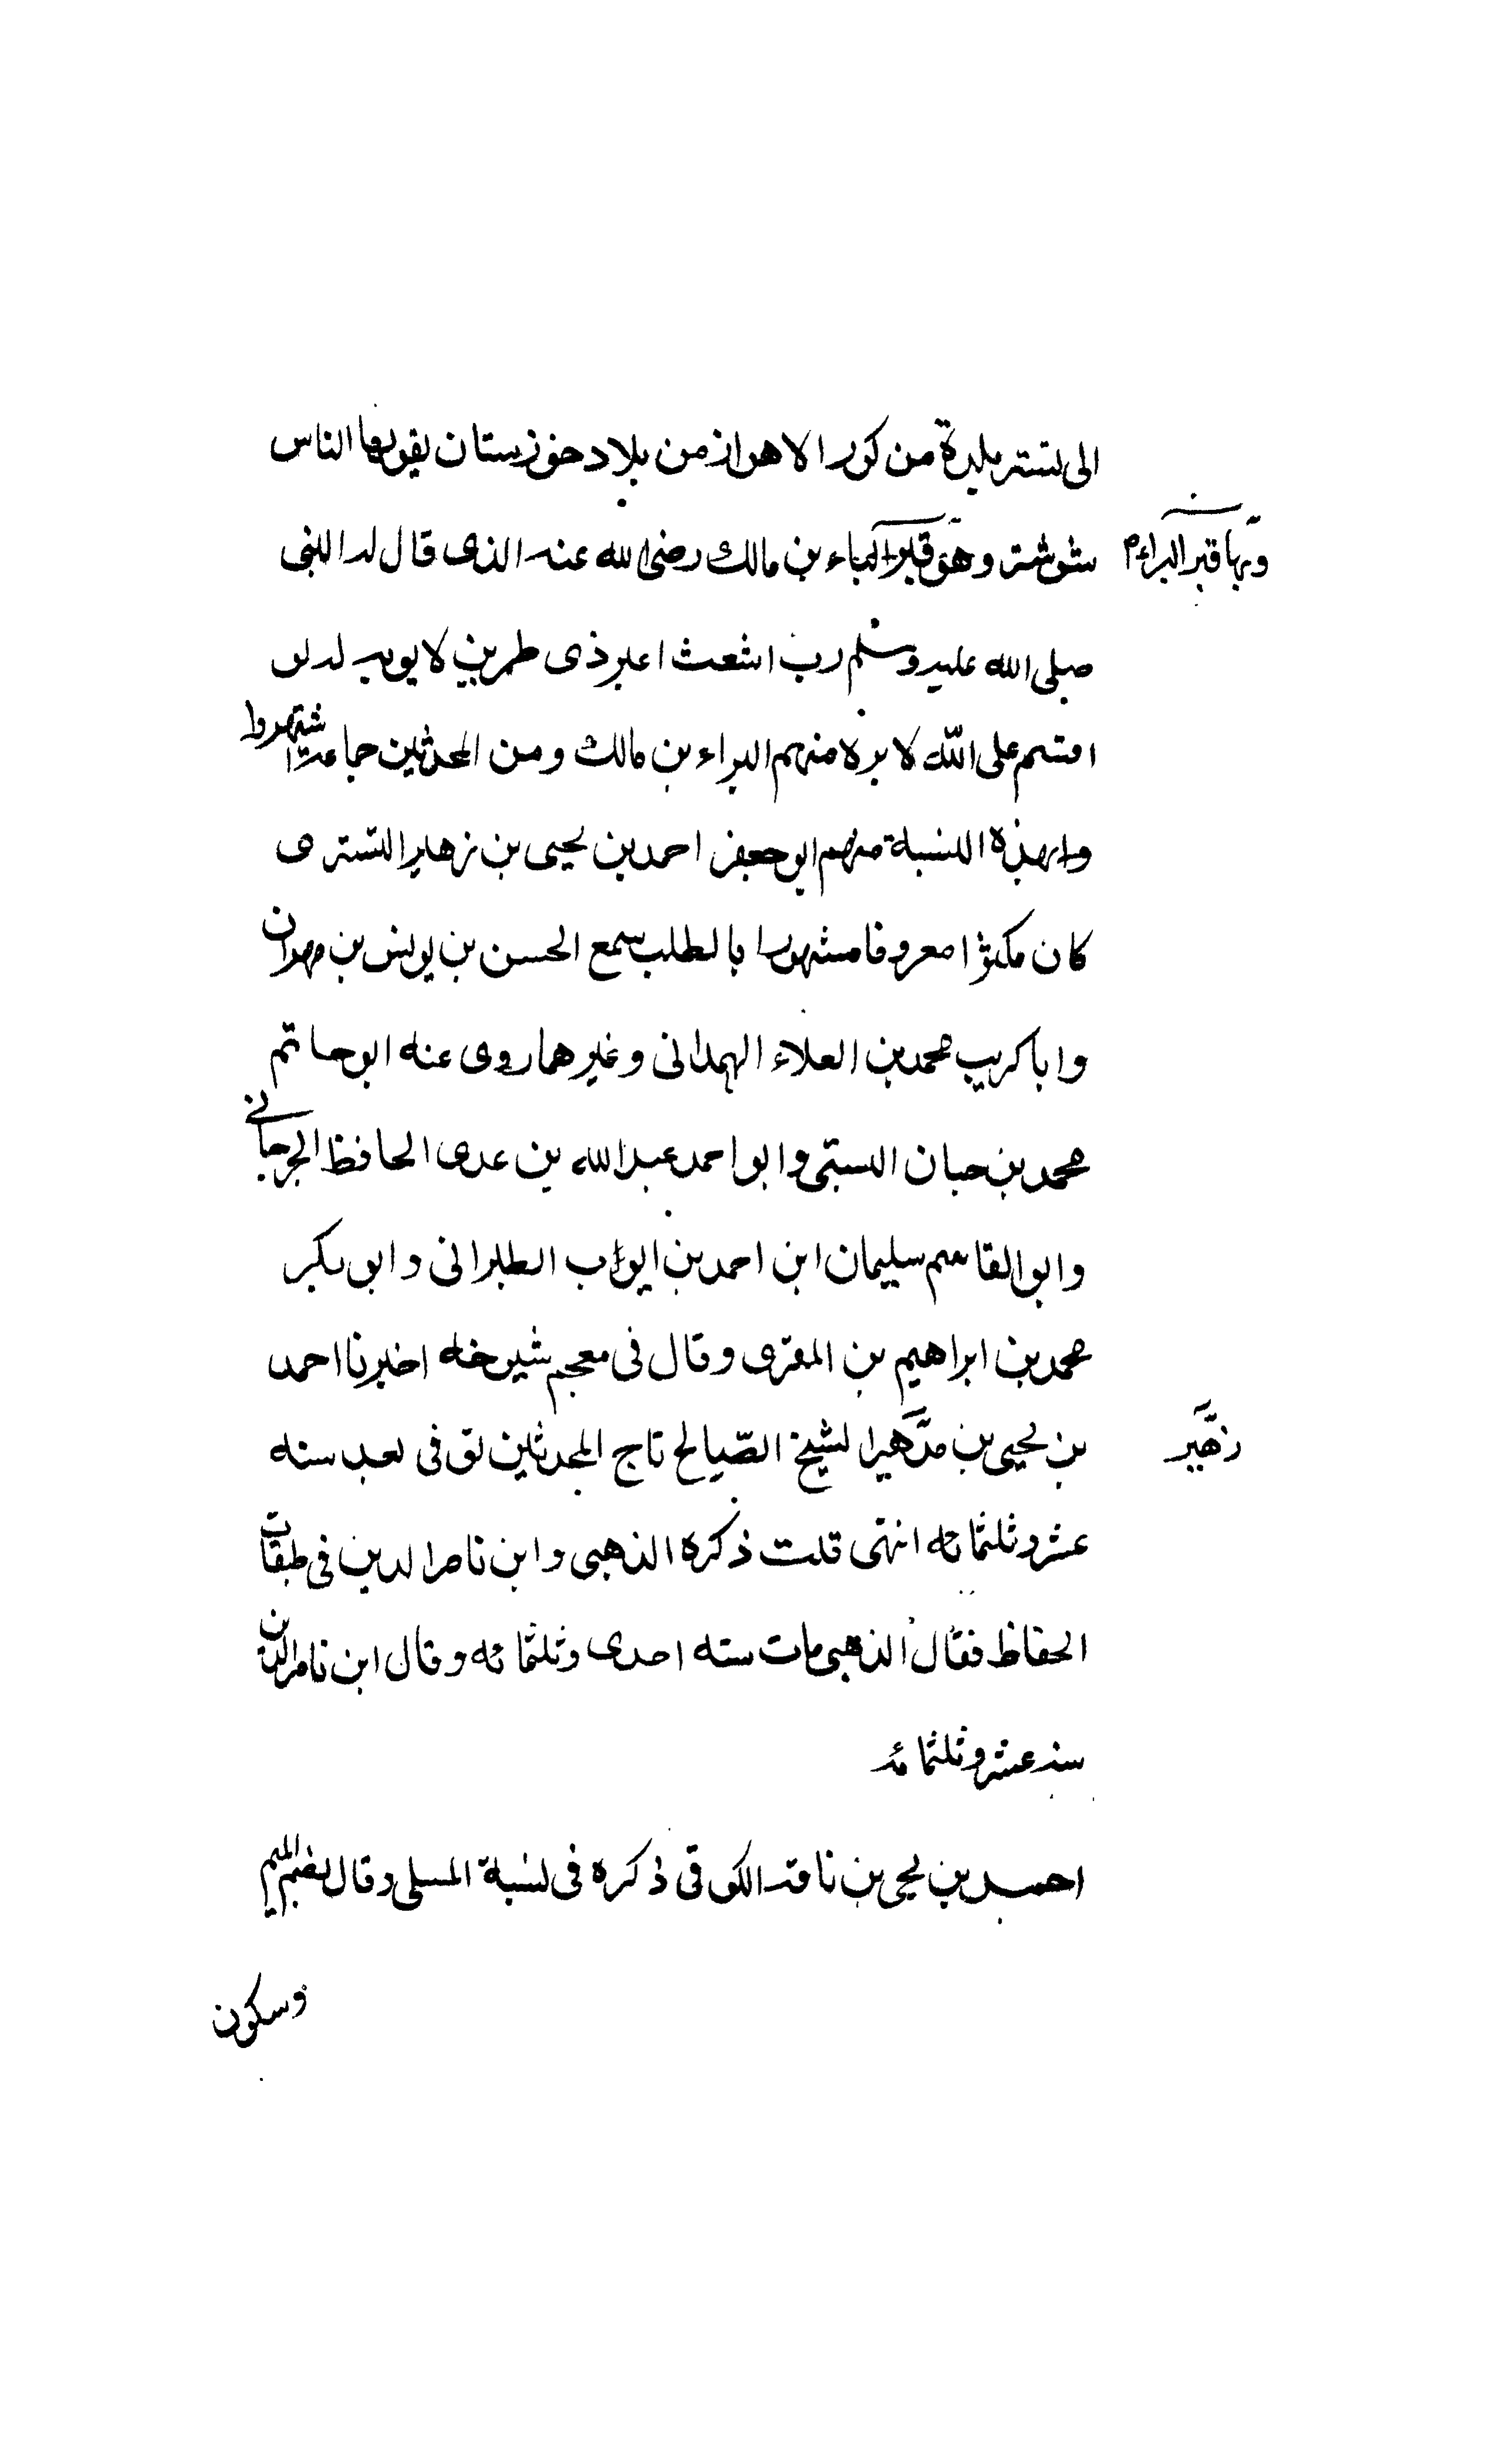 الى تستر بلدة من كور الاهواز من بلاد خوزستان يقولها الناس
شوشتر وهو قبر البراء بن مالك رضى الله عنه الذى قال له النبى
وبها قبر البراء م
صلى الله عليه وسلم رب اشعث اغبر ذى طمرين لا يوبه له لو
اقسم على الله لابره منهم البراء بن مالك ومن المحدثين جماعة اشتهروا
وابهذه النسبة منهم ابو جعفر احمد بن يحيى بن زهير التسترى
كان مكثرا معروفا مشهورا بالطلب سمع الحسن بن يونس بن مهران
وابا كريب محمد بن العلاء الهمدانى وغيرهما روى عنه ابو حاتم
محمد بن حبان البستى وابو احمد عبد الله بن عدى الحافظ الجرجانى
وابو القاسم سليمان ابن احمد بن ايواب الطبرانى وابو بكر
محمد بن ابراهيم بن المقرى وقال فى معجم شيوخه اخبرنا احمد
بن يحيى بن مدهير الشيخ الصالح تاج المحدثين توفى بعد سنه
زهير
عشر وثلثمائه انتهى قلت ذكره الذهبى وابن ناصر الدين فى طبقات
الحفاظ فقال الذهبى مات سنه احدى وثلثمائه وقال ابن ناصر الدين
سنه عشر وثلثمائه
احمد بن يحيى بن ناقه الكوفى ذكره فى نسبة المسلى وقال بضم الميم
وسكون